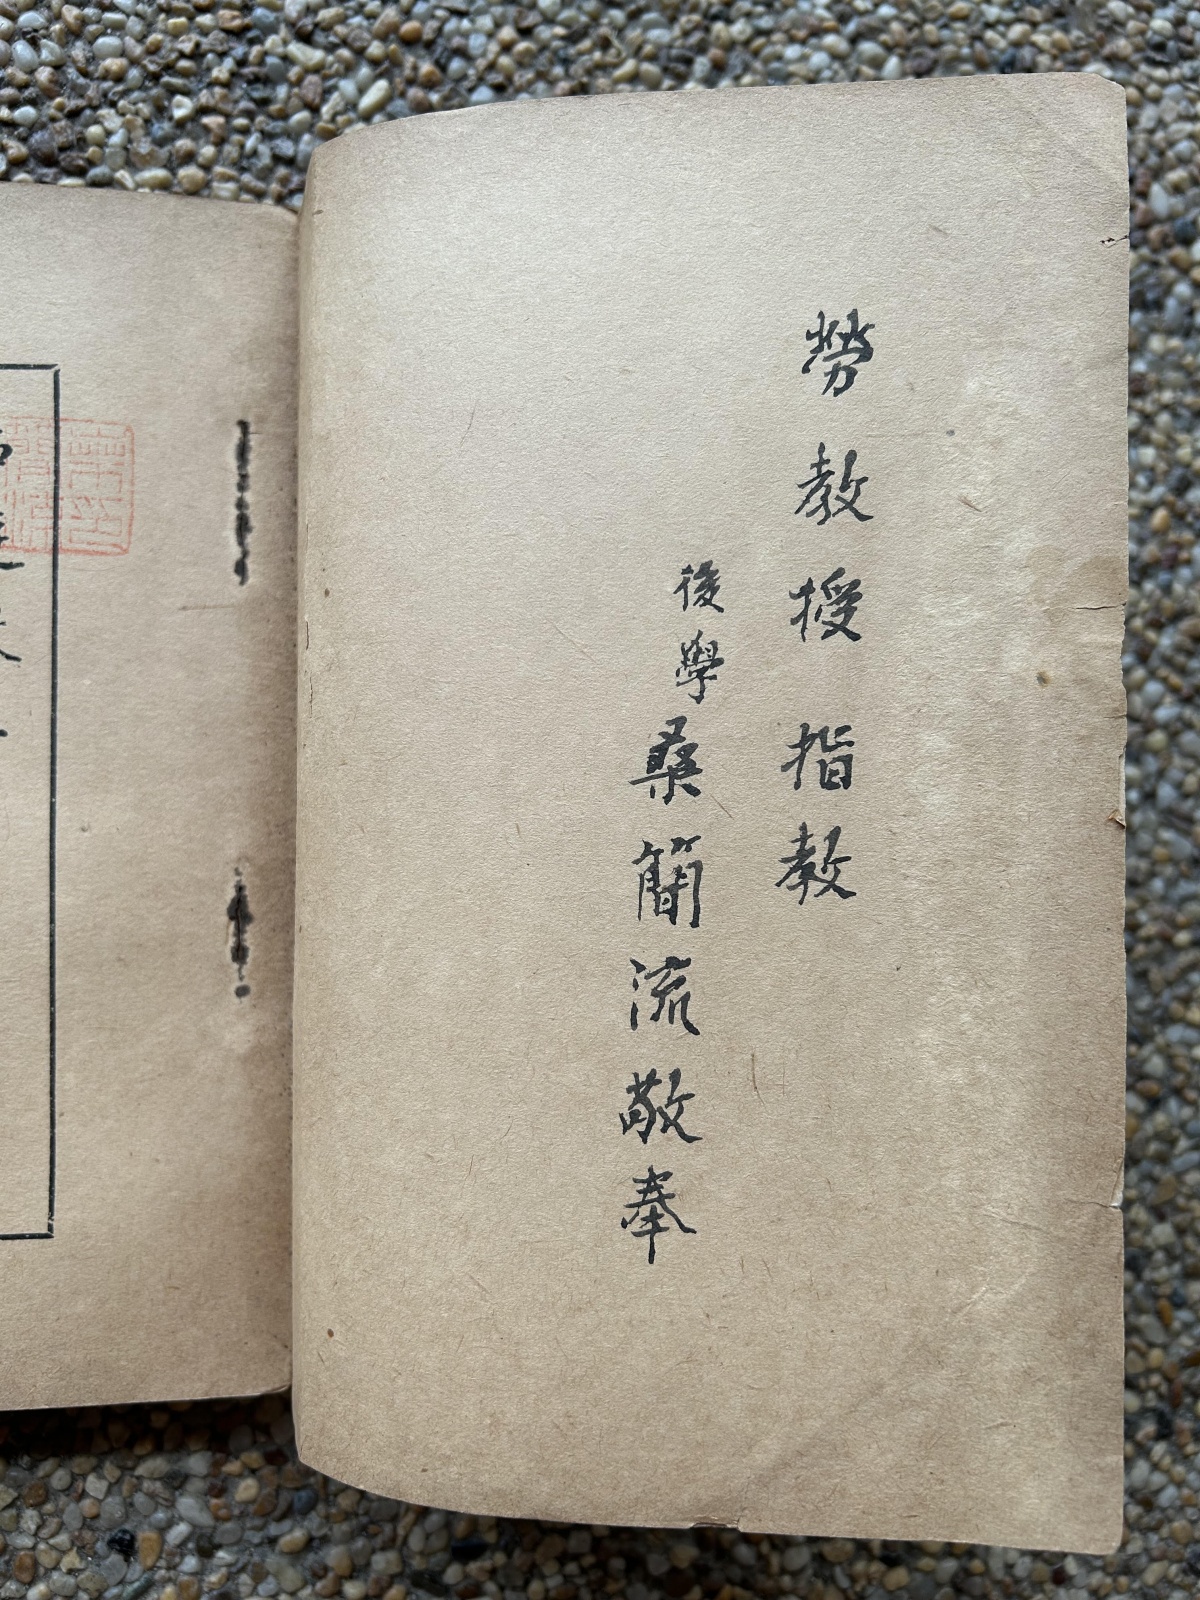 勞教授指教
後學桑簡流敬奉